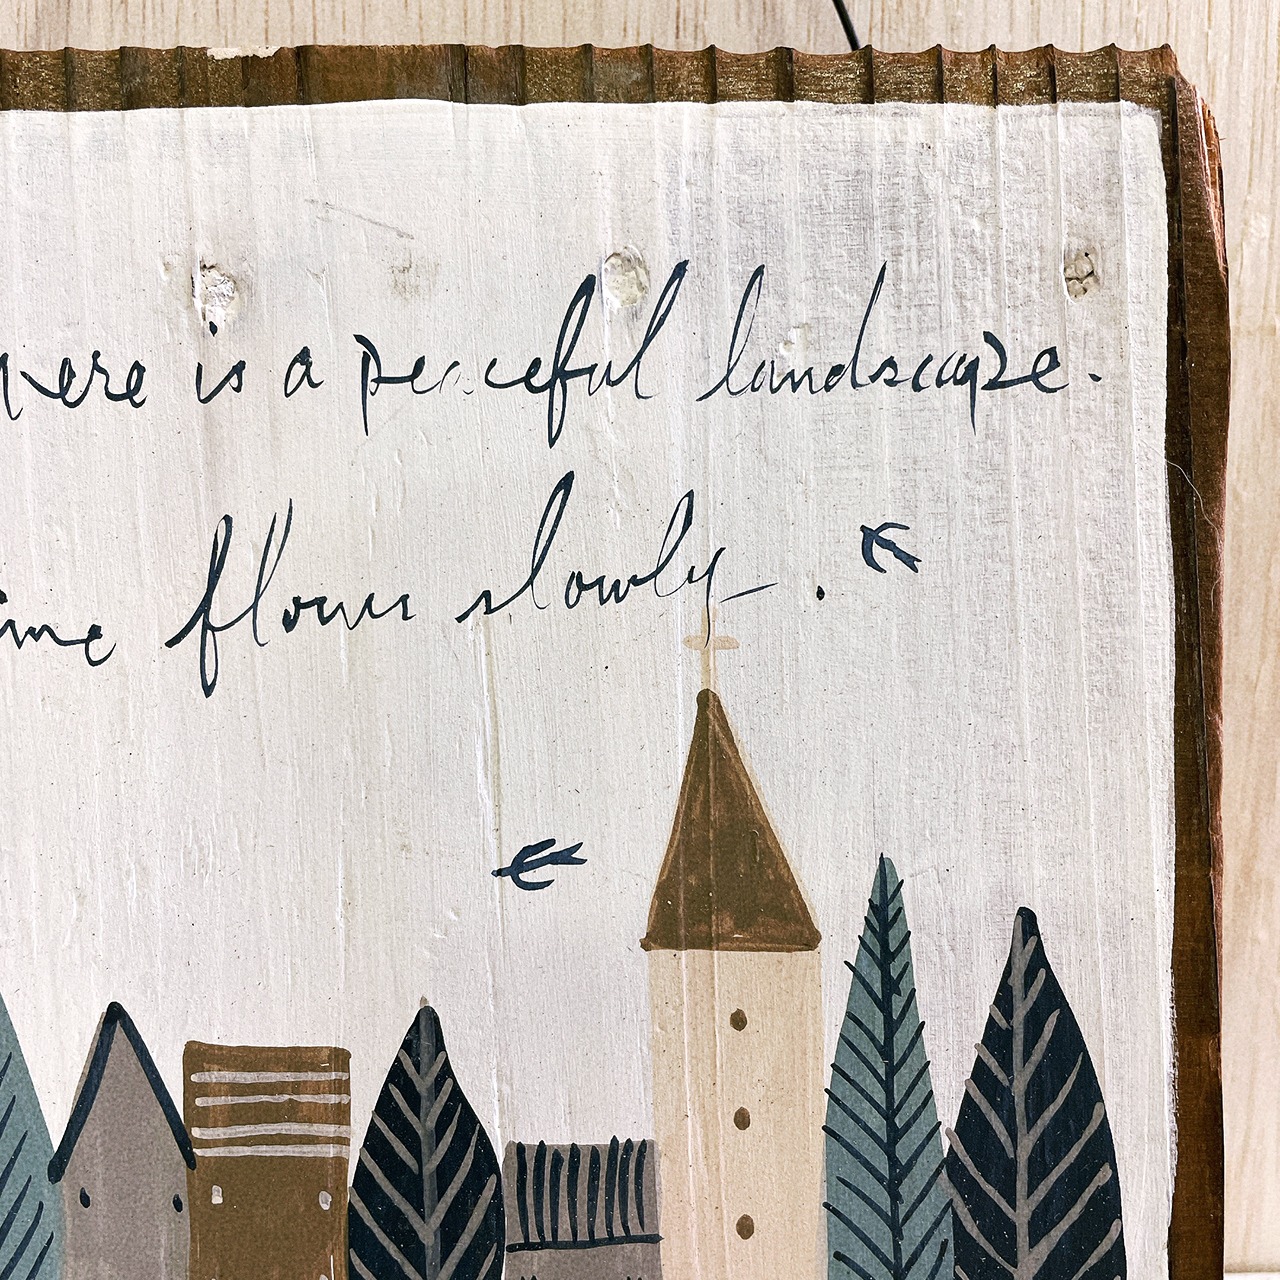 here is a peaceful landscape.
ime flows slowly.